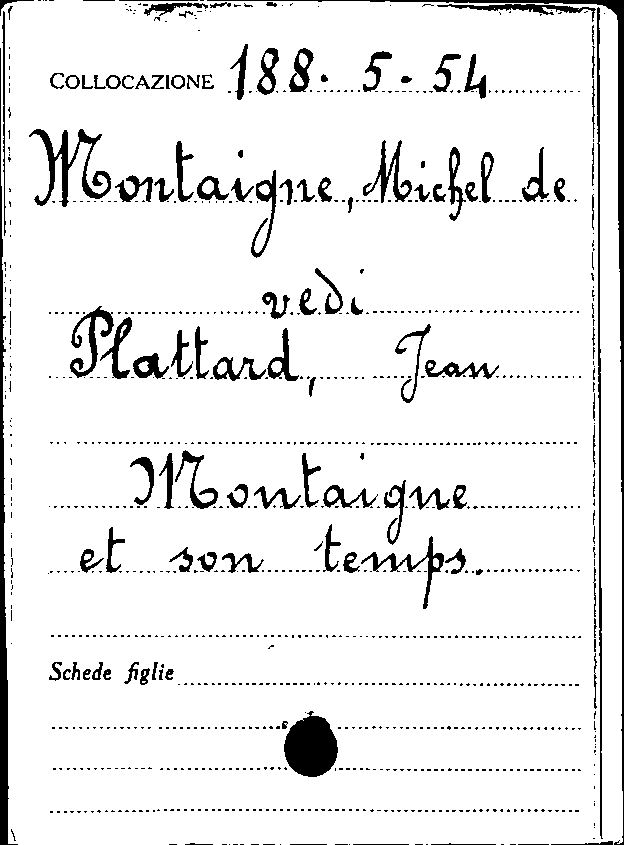 COLLOCAZIONE 188. 5. 54
Montaigne, Michel de
vedi
Plattard, Jean
Montaigne
et son temps.
Schede figlie